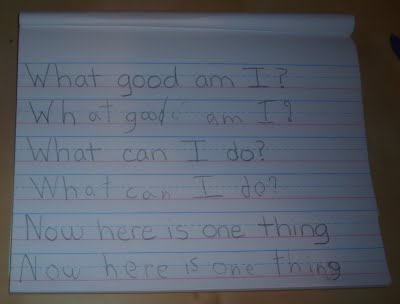 What good am I?
What good am I?
What can I do?
What can I do?
Now here is one thing
Now here is one thing